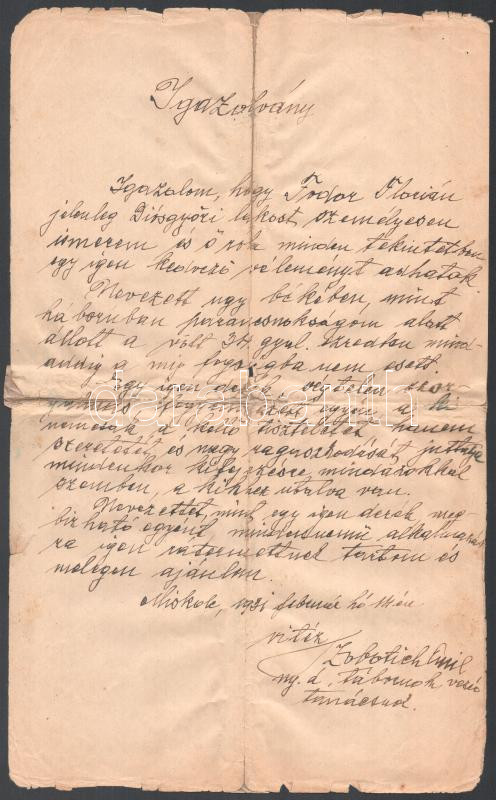 Igazolvány
Igazolom, hogy Fodor Florián
jelenleg Diósgyőri lakost, személyesen
ismerem és ő róla minden tekintetben
egy igen kedvező véleményt adhatok.
Nevezett ugy békében, mint
háboruban parancsnokságom alatt
állott a volt 34. gyal. ezredben mind-
addig a mig fogságba nem esett.
Egy igen derék, végtelen
egyén a ki
nemcsak a kellő tiszteletet hanem
szeretetét és nagy ragaszkodását juttatja
mindenkor kifejezésre, mindazokkal
szemben, a kikhez utalva van.
Nevezettet, mint egy igen derék, meg-
bizható egyént mindennemü
ra igen rátermettnek tartom és
melegen ajánlom.
Miskolc, 1931 február hó
vitéz
Zobotich Emil
ny. á. tábornok
darabanth